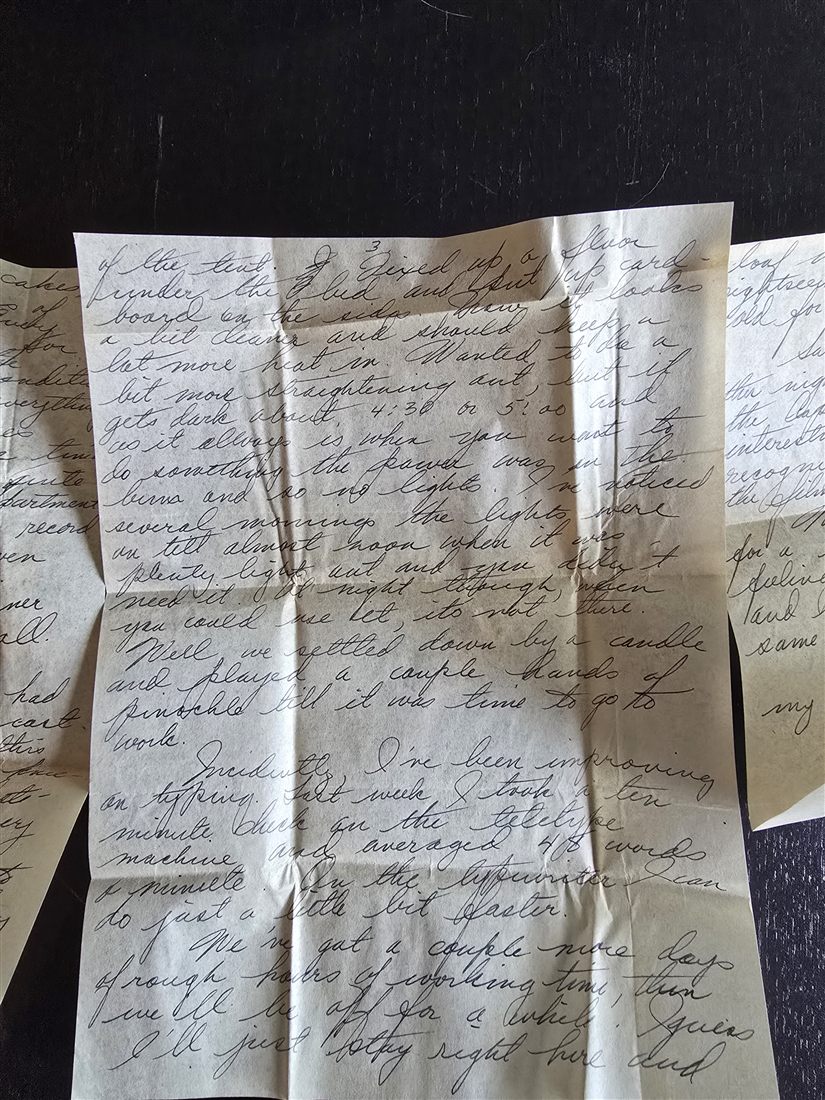 cakes
of
for
conditi
everything
partment
record
ven
ner
all.
had
cast.
this
ery
3
of the tent. I fixed up a floor
under the and put up card-
board on the sides. Now it looks
a bit cleaner and should keep a
lot more heat in. Wanted to do a
bit more straightening out, but it
gets dark about 4:30 or 5:00 and
as it always is when you want to
do something the power was on the
bum and so no lights. I've noticed
several mornings the lights were
on till almost noon when it was
plenty light out and you didn't
need it. At night though, when
you could use it, its not there.
Well, we settled down by a candle
and played a couple hands of
pinochle till it was time to go to
work.
Incidently, I've been improving
on typing. Last week I took a ten
minute check on the teletype
machine and averaged 48 words
a minute. On the typewriter I can
do just a little bit faster.
We've got a couple more days
of rough hours of working time, then
we'll be off for a while. I guess
I'll just stay right here and
loaf
ightsee
old for
the
interesti
recogni
the film
for a
and I
same
my